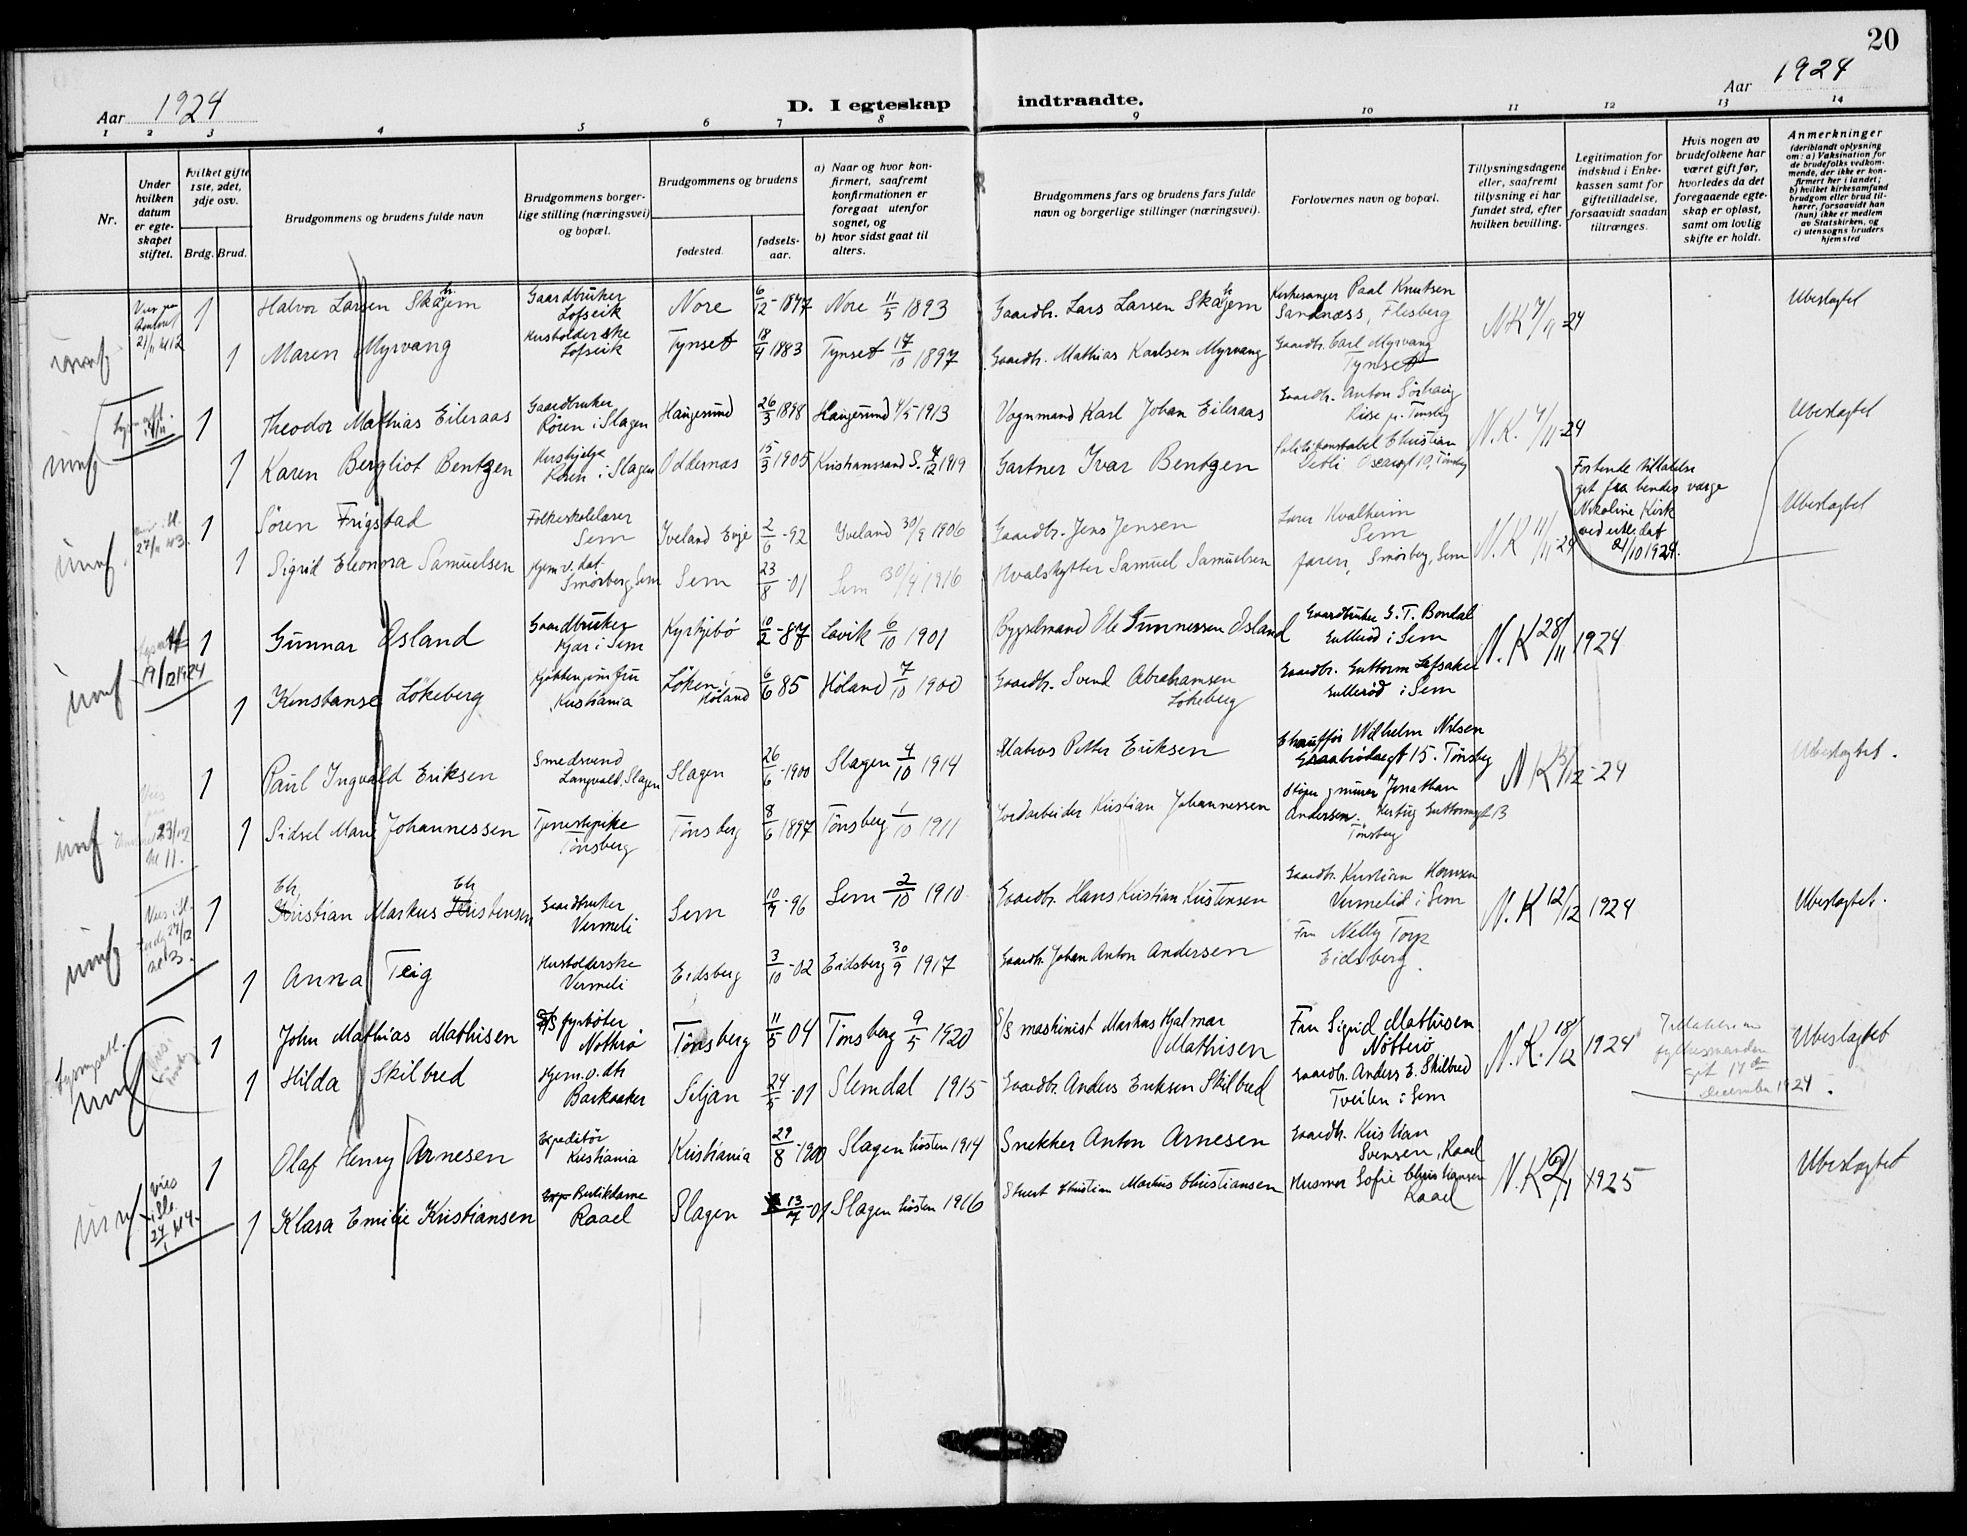 20
Aar 1924
D. I egteskap indtraadte.
Aar 1924
1 2 3 4 5 6 7 8 9 10 11 12 13 14
Nr.
Under hvilken datum er egteskapet stiftet.
Hvilket gifte 1ste, 2det, 3dje osv.
Brdg. Brud.
Brudgommens og brudens fulde navn
Brudgommens borgerlige stilling (næringsvei) og bopæl.
Brudgommens og brudens
fødested.
fødselsaar.
a) Naar og hvor konfirmert, saafremt konfirmationen er foregaat utenfor sognet, og
b) hvor sidst gaat til alters.
Brudgommens fars og brudens fars fulde navn og borgerlige stillinger (næringsvei).
Forlovernes navn og bopæl.
Tillysningsdagene eller, saafremt tillysning ei har fundet sted, efter hvilken bevilling.
Legitimation for indskud i Enkekassen samt for giftetilladelse, forsaavidt saadan tiltrænges.
Hvis nogen av brudefolkene har været gift før, hvorledes da det foregaaende egteskap er opløst, samt om lovlig skifte er holdt.
Anmerkninger (deriblandt oplysning om: a) Vaksination for de brudefolks vedkommende, der ikke er konfirmert her i landet; b) hvilket kirkesamfund brudgom eller brud tilhører, forsaavidt han (hun) ikke er medlem av Statskirken, og c) utensogns bruders hjemsted
1 Halvor Larsen Skajem Gaardbruker Lofseik Nore 6/12-1877 Nore 11/5 1893 Gaardbr. Lars Larsen Skajem Kirkesanger Paal Knutsen Sandnæss, Flesberg N.K 7/11 24 Ubeslagtet
1 Maren Myrvang Husholderske Lofseik Tynset 18/4 1883 Tynset 17/10 1897 Gaardbr. Mathias Karlsen Myrvang Gaardbr. Carl Myrvang Tynset
1 Theodor Mathias Eileraas Gaardbruker Røren i Slagen Haugesund 26/3 1898 Haugesund 4/5 1913 Vognmand Karl Johan Eileraas Gaardbr. Anton Sørhaug Rise pr. Tønsbg N.K. 7/11-24 Ubeslagtet
1 Karen Bergliot Bentzen Hushjelp Røren i Slagen Oddernæs 15/3 1905 Kristianssand S. 7/12 1919 Gartner Ivar Bentzen Politikonstabel Christian
1 Søren Frigstad Folkeskolelærer Sem Iveland Evje 2/6-92 Iveland 30/9 1906 Gaardbr. Jens Jensen Lærer Kvalheim Sem N.K 11/11-24 Ubeslagtet
Nikoline Kirk
21/10 1924.
1 Sigrid Eleonora Samuelsen Hjem.v. dat. Smørberg, Sem Sem 23/8-01 Sem 30/4 1916 Hvalskytter Samuel Samuelsen faren, Smørberg, Sem
19/12 1924
1 Gunnar Østand Gaardbruker Kjær i Sem Kyrkjebø 10/2-87 Lavik 6/10 1901 Bygselmand Ole Gunnessen Østand Gaardbruker G. T. Bondal Gullerød i Sem N.K 28/11 1924
1 Konstanse Løkeberg Kjøkkenjomfru Kristiania Løken i Høland 6/6 85 Høland 7/10 1900 Gaardbr. Svend Abrahamsen Løkeberg Gaardbr. Guttorm Lofsakei Gullerød i Sem
1 Paul Ingvald Eriksen Smedsvend Langvald, Slagen Slagen 26/6-1900 Slagen 4/10 1914 Matros Petter Eriksen Chauffør Wilhelm Nilsen Graabrødregt 15. Tønsberg N.K 13/12-24 Ubeslagtet.
23/12 kl 11.
1 Sidsel Marie Johannessen Tjenestepike Tønsberg Tønsberg 8/6 1897 Tønsberg 1/10 1911 Jordarbeider Kristian Johannessen Jonathan Andersen. Hertug Guttormsgt 13 Tønsberg
1 Christian Markus Christensen Gaardbruker Vermeli Sem 10/9-96 Sem 2/10 1910 Gaardbr. Hans Kristian Kristensen Gaardbr. Kristian Hansen Vermelid i Sem N.K 12/12 1924 Ubeslagtet.
1 Anna Teig Husholderske Vermeli Eidsberg 3/10-02 Eidsberg 30/9 1917 Gaardbr. Johan Anton Andersen Fru Nelly Torp Eidsberg.
1 John Mathias Mathisen D/S fyrbøter Nøtterø Tønsberg 11/5 04 Tønsberg 9/5 1920 D/S maskinist Markus Hjalmar Mathisen Fru Sigrid Mathisen Nøtterø N.K. 18/12 1924 Tilladelse av fylkesmanden git 17de December 1924. Ubeslagtet
1 Hilda Skilbred Hjem.v. dtr Barkaaker Siljan 24/5-01 Slemdal 1915 Gaardbr. Anders Eriksen Skilbred Gaardbr. Anders E. Skilbred Tveiten i Sem
1 Olaf Henry Arnesen Expeditør Kristiania Kristiania 29/8-1900 Slagen høsten 1914 Snekker Anton Arnesen Gaardbr. Kristian Svensen, Raael N.K 2/1 1925 Ubeslagtet
vies
24/1 kl 4.
1 Klara Emilie Kristiansen Butikdame Raael Slagen 13/7-01 Slagen høsten 1916 Stuert Christian Martius Christiansen Husmor Sofie Christiansen Raael